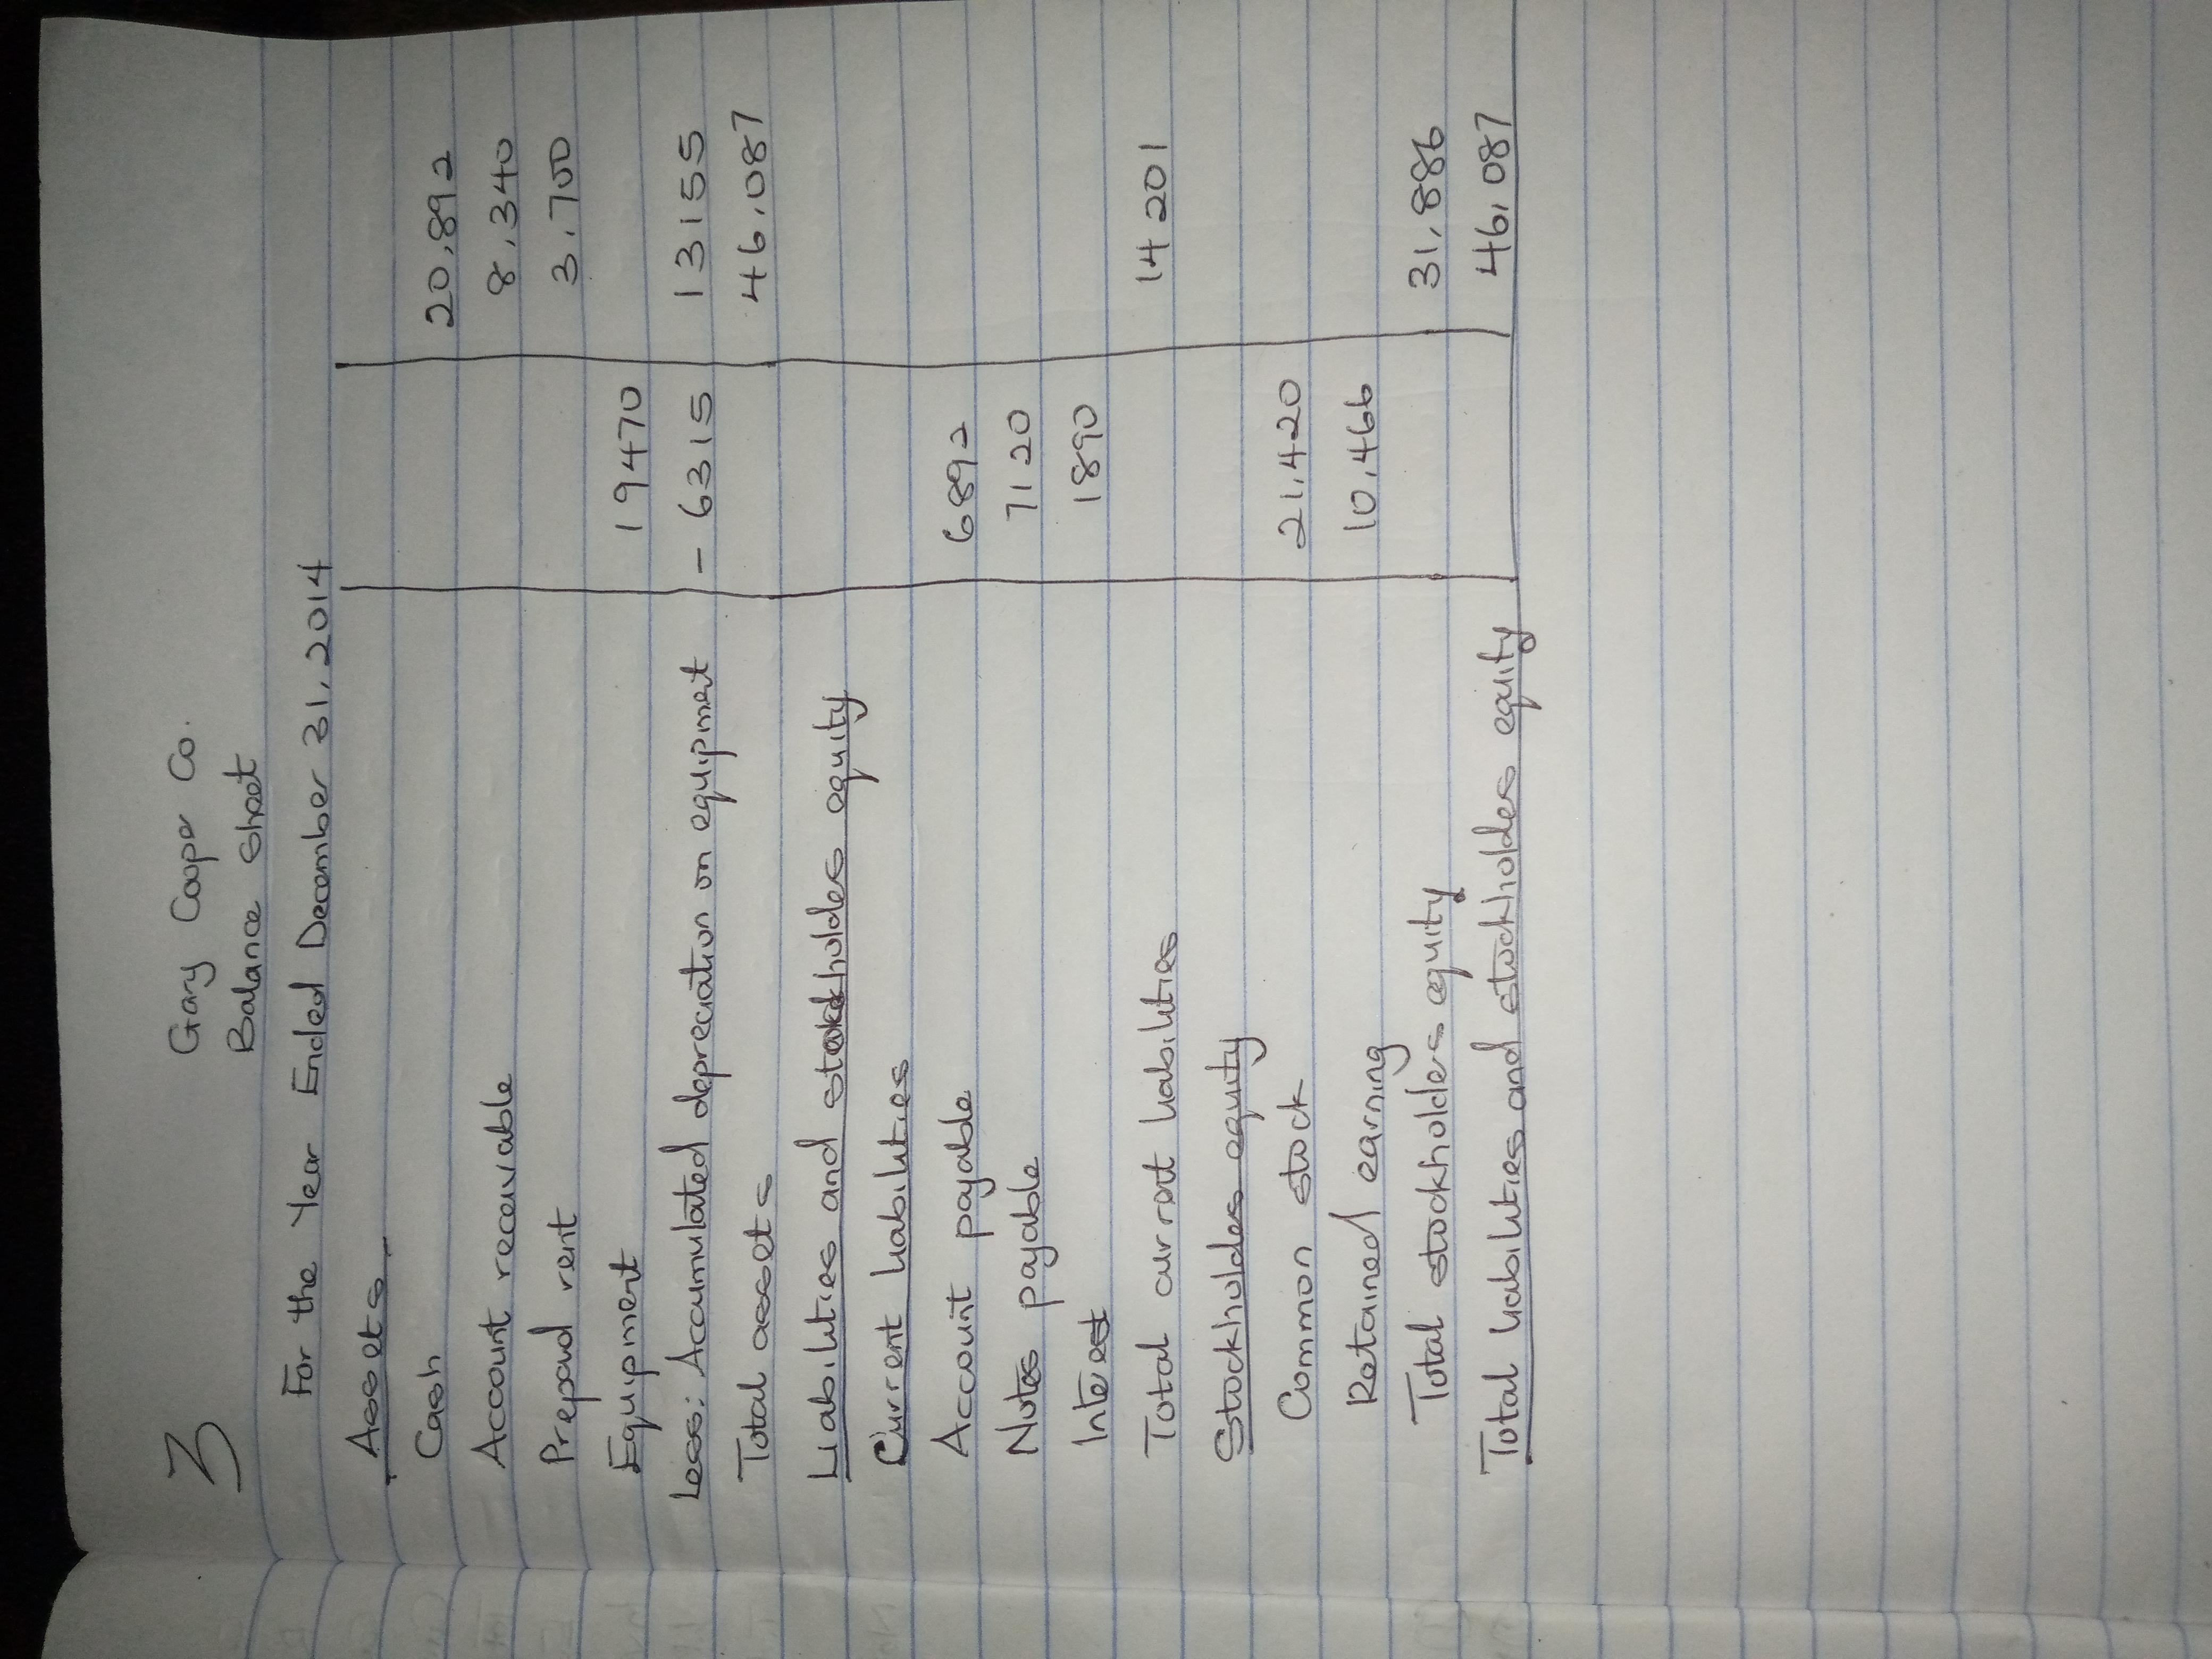 3
Gary Cooper Co.
Balance sheet
For the Year Ended December 31, 2014
Assets
Cash 20,892
Account receivable 8,340
Prepaid rent 3,700
Equipment 19470
Less: Accumulated depreciation on equipment - 6315 13155
Total assets 46,087
Liabilities and stockholdes equity
Current liabilities
Account payable 6892
Notes payable 7120
Interest 1890
Total current liabilities 14201
Stockholdes equity
Common stock 21,420
Retained earning 10,466
Total stockholders equity 31,886
Total liabilities and stockholdes equity 46,087